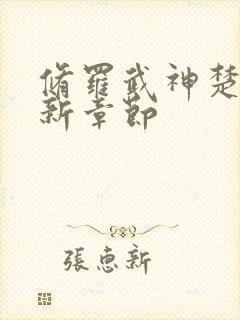 脩羅武神楚
新章節
張惠新